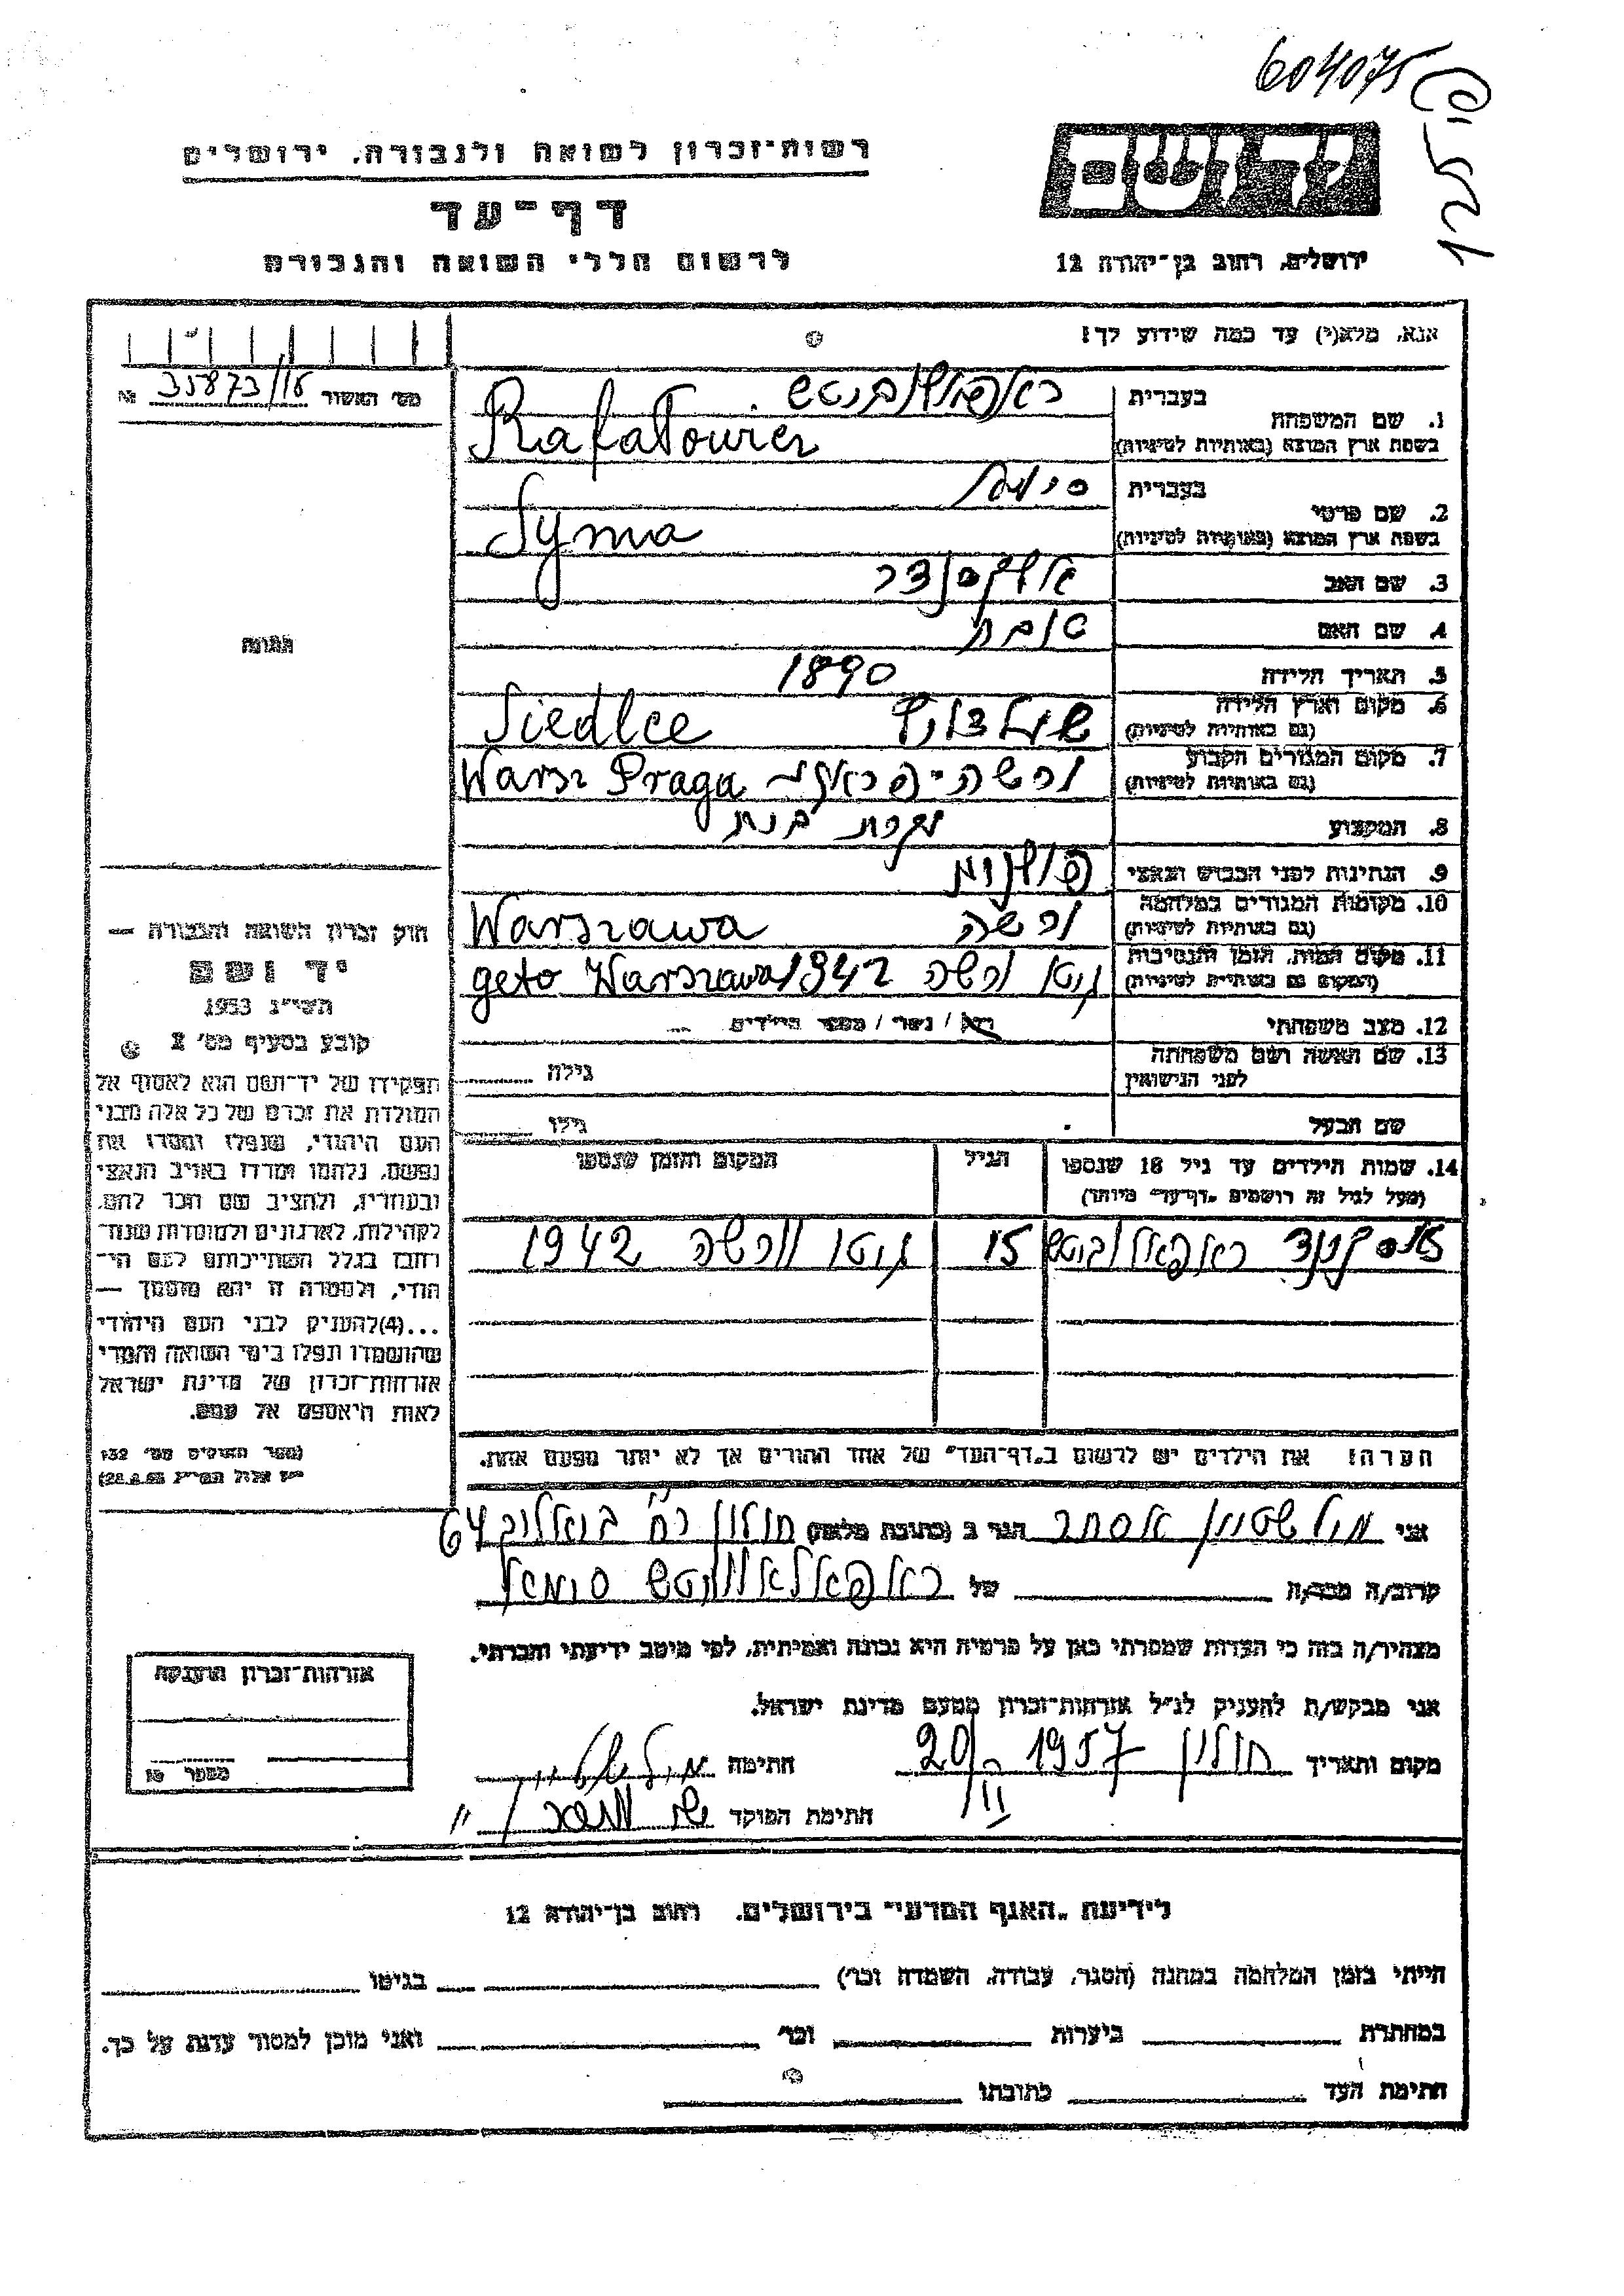 604075
רשות־זכרון לשואה ולגבורה, ירושלים
ידושם
דף־עד
לרשום חללי השואה והגבורה
ירושלים, רחוב בן־יהודה 12
אנא, מלא(י) עד כמה שידוע לך!
מס׳ האשור 35873/16 №
1. שם המשפחה
בעברית ראפאלוביטש
בשפת ארץ המוצא (באותיות לטיניות) Rafałowicz
2. שם פרטי
בעברית סימה
בשפת ארץ המוצא (באותיות לטיניות) Syma
3. שם האב
4. שם האם טובה
5. תאריך הלידה 1890
6. מקום וארץ הלידה
(גם באותיות לטיניות) Siedlce
7. מקום המגורים הקבוע
(גם באותיות לטיניות) ורשה־פראגה Warsz Praga
8. המקצוע עקרת בית
9. הנתינות לפני הכבוש הנאצי פולנית
10. מקומות המגורים במלחמה
(גם באותיות לטיניות) ורשה Warszawa
11. מקום המות, הזמן והנסיבות
(המקום גם באותיות לטיניות) גיטו ורשה 1942 geto Warszawa
12. מצב משפחתי רוק/ נשוי/ מספר הילדים
13. שם האשה ושם משפחתה
לפני הנישואין
גילה
שם הבעל גילו
14. שמות הילדים עד גיל 18 שנספו
(מעל לגיל זה רושמים „דף־עד״ מיוחד)
הגיל
המקום והזמן שנספו
ראפאלוביטש 15 גיטו וורשה 1942
הערה: את הילדים יש לרשום ב„דף־העד״ של אחד ההורים אך לא יותר מפעם אחת.
התמונה
חוק זכרון השואה והגבורה —
יד ושם
תשי״ג 1953
קובע בסעיף מס׳ 2
תפקידו של יד־ושם הוא לאסוף אל
המולדת את זכרם של כל אלה מבני
העם היהודי, שנפלו ומסרו את
נפשם, נלחמו ומרדו באויב הנאצי
ובעוזריו, ולהציב שם וזכר להם,
לקהילות, לארגונים ולמוסדות שנח־
רובו בגלל השתייכותם לעם הי־
הודי, ולמטרה זו יהא מוסמך —
...(4)להעניק לבני העם היהודי
שהושמדו ונפלו בימי השואה והמרי
אזרחות־זכרון של מדינת ישראל
לאות היאספם אל עמם.
(ספר החוקים מס׳ 132
י״ז אלול תשי״ג 28.8.53)
אני אסתר הגר ב (כתובת מלאה) חולון רח׳ 64
קרוב/ה מכר/ה של סימה
מצהיר/ה בזה כי העדות שמסרתי כאן על פרטיה היא נכונה ואמיתית, לפי מיטב ידיעתי והכרתי.
אני מבקש/ת להעניק לנ״ל אזרחות־זכרון מטעם מדינת ישראל.
מקום ותאריך חולון 20/VI 1957 חתימה
חתימת הפוקד
אזרחות־זכרון הוענקה
מספר
לידיעת „האגף המדעי״ בירושלים, רחוב בן־יהודה 12
הייתי בזמן המלחמה במחנה (הסגר, עבודה, השמדה וכו׳) בגיטו
במחתרת ביערות וכו׳ ואני מוכן למסור עדות על כך.
חתימת העד כתובתו